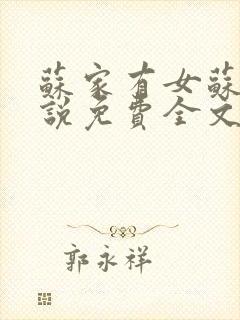 蘇家有女蘇
說免費全文
郭永祥